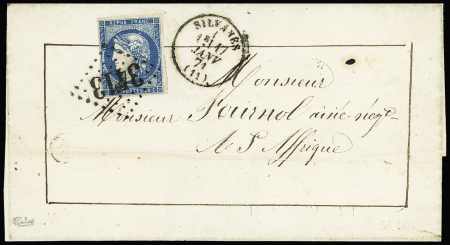 REPUB. FRANC.
3413
SILVANÈS
17
JANV
71
(11)
Monsieur
Monsieur Fournol ainé négt
A St Affrique